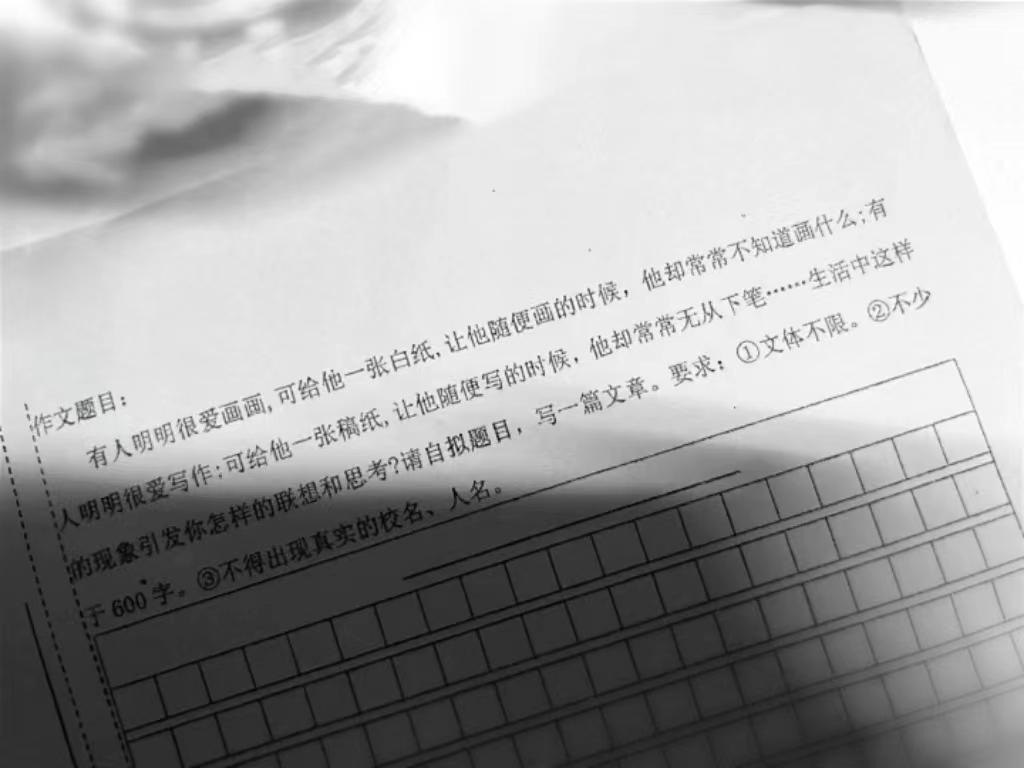 作文题目：
有人明明很爱画画,可给他一张白纸,让他随便画的时候，他却常常不知道画什么;有
人明明很爱写作;可给他一张稿纸,让他随便写的时候，他却常常无从下笔……生活中这样
的现象引发你怎样的联想和思考?请自拟题目，写一篇文章。要求：①文体不限。②不少
于600字。③不得出现真实的校名、人名。